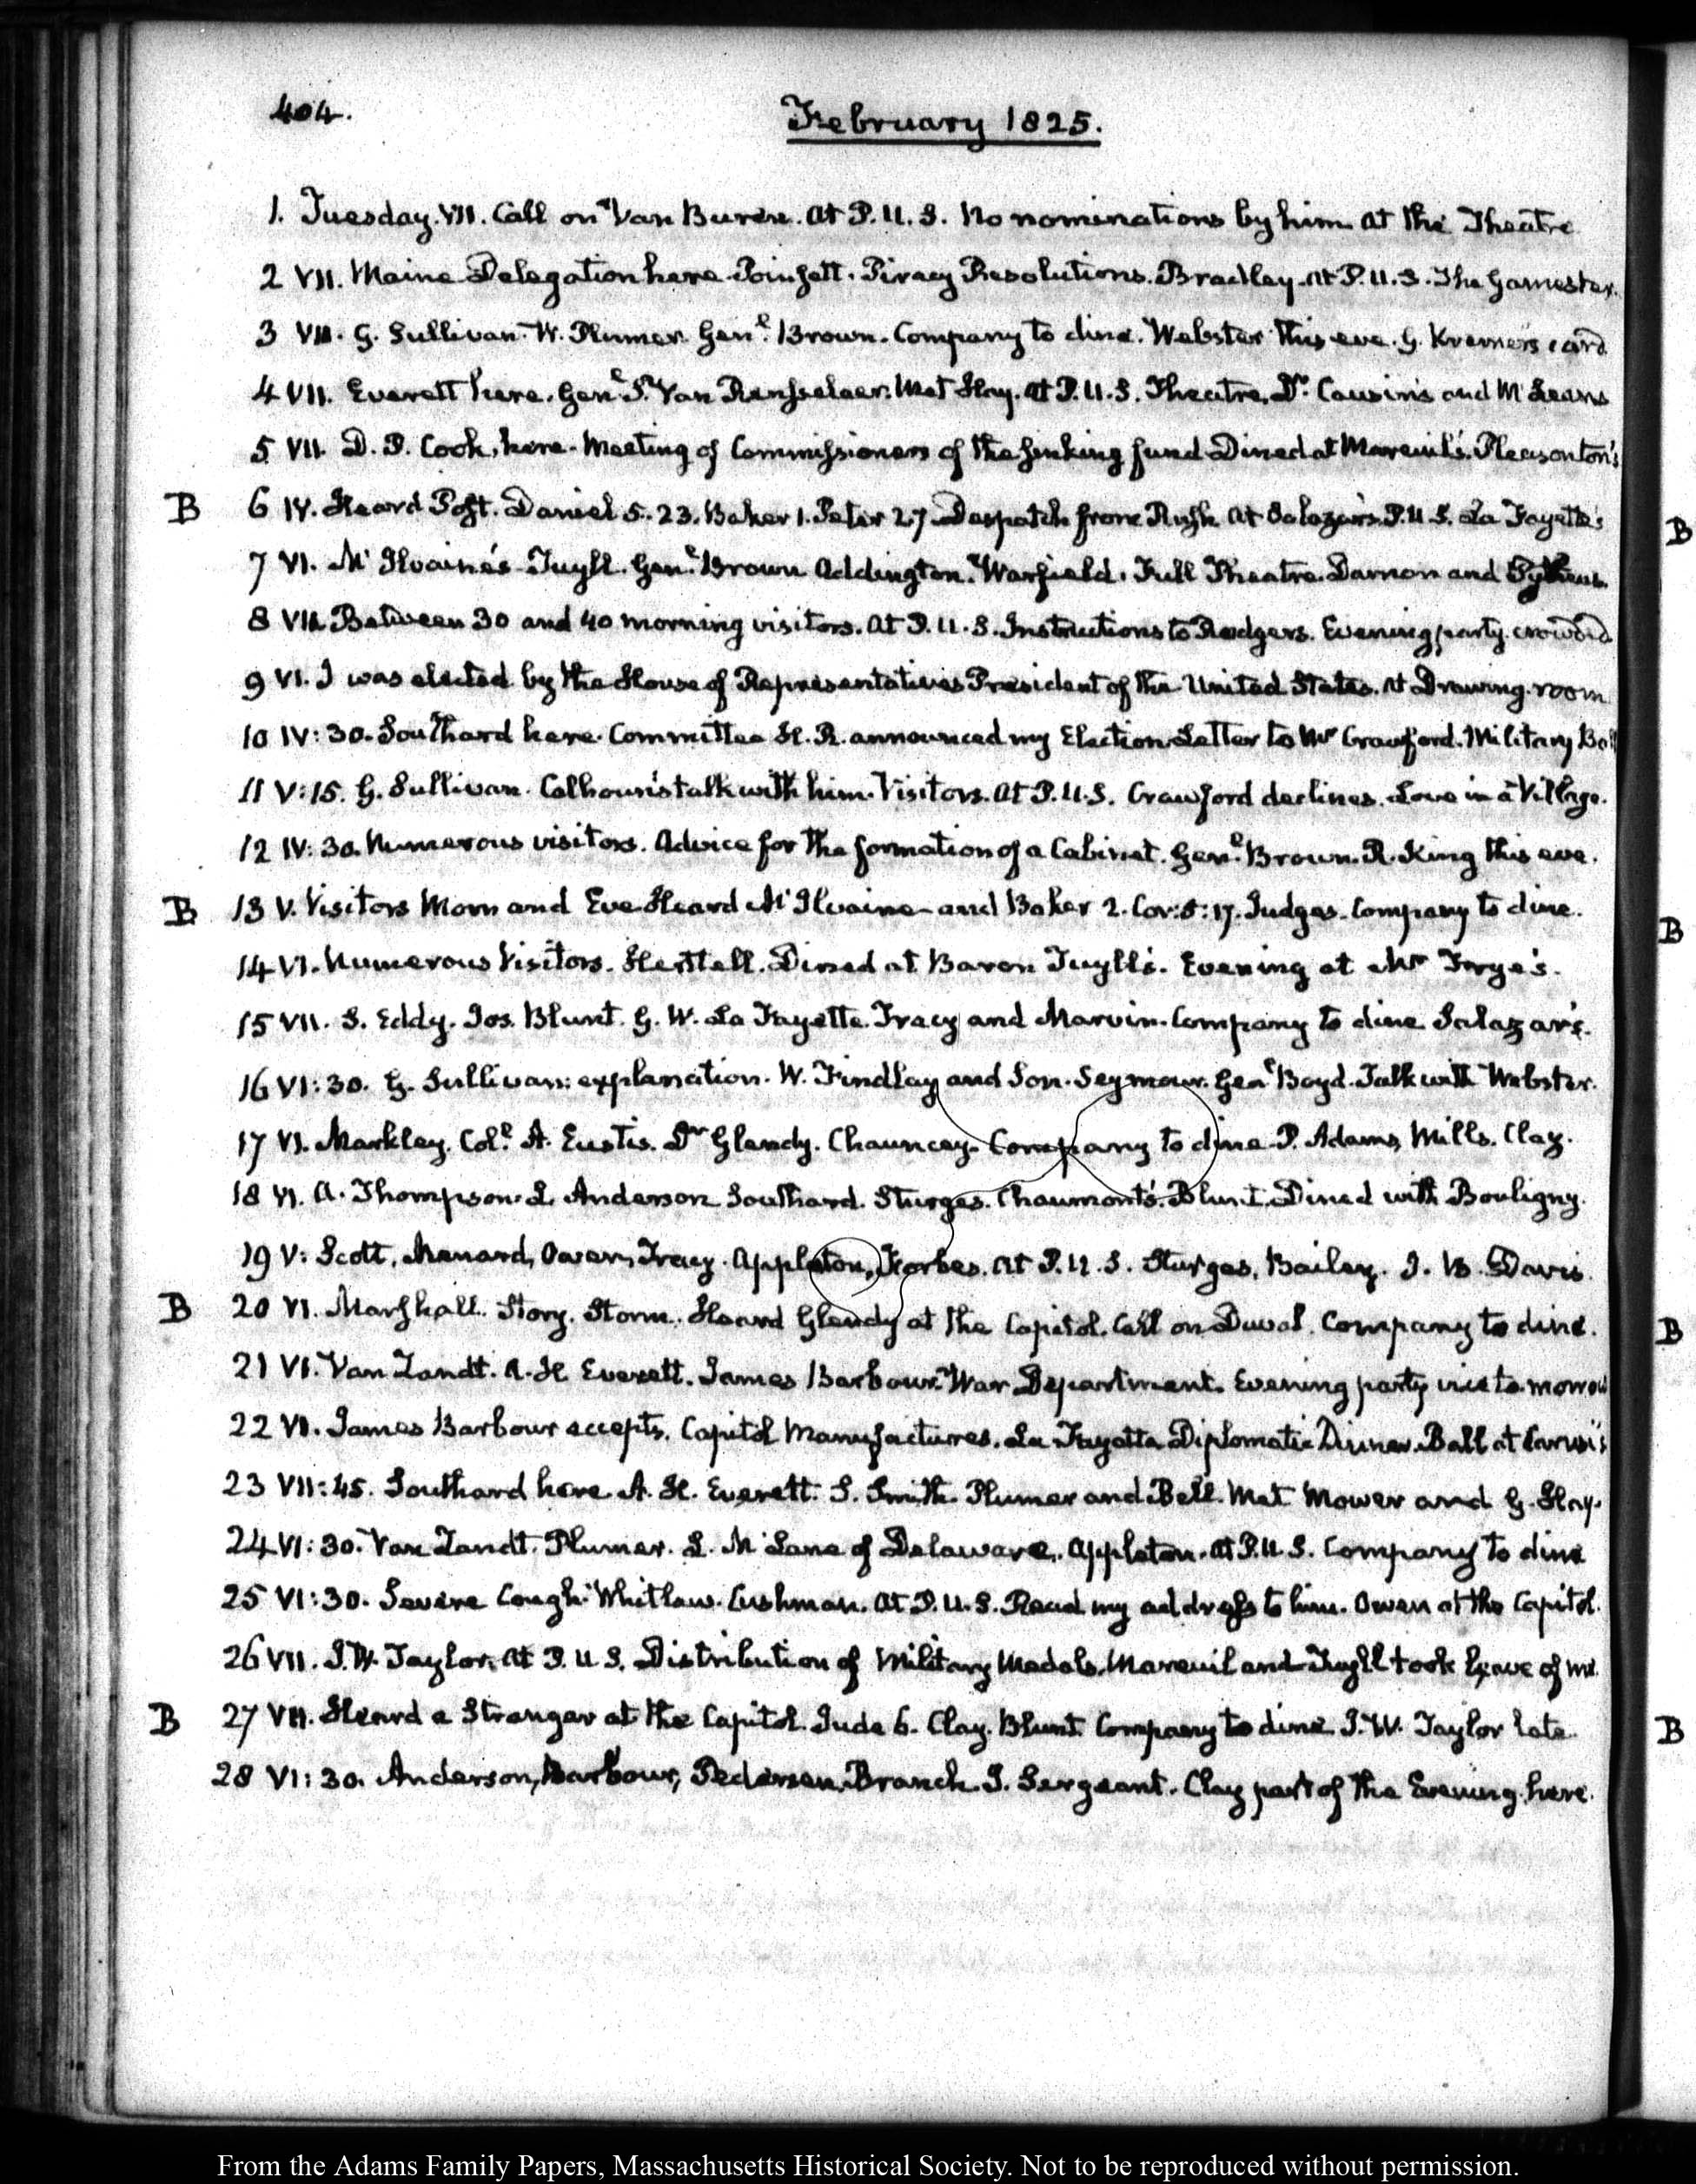 404.
February 1825.
1. Tuesday. VII. Call on Van Buren. At P.U.S. No nominations by him. At the Theatre
2 VII. Maine Delegation here. Poinsett. Piracy Resolutions. Bradley. At P.U.S. The Gamester.
3 VII. G. Sullivan. W. Plumer. Genl. Brown. Company to dine. Webster this eve. G. Kremer's card
4 VII. Everett here. Genl. S. Van Rensselaer. Met Hay. At P.U.S. Theatre. Dr. Cousin's and McLeans
5 VII. D. P. Cook, here. Meeting of Commissioners of the sinking fund. Dined at Mareuil's. Pleasonton's
B 6 IV. Heard Post. Daniel 5. 23. Baker 1. Peter 2.7 Despatch from Rush. At Salazar's. P.U.S. La Fayette's
7 VI. McIlvaine's. Tuyll. Genl. Brown Addington. Warfield. Full Theatre. Damon and Pythias.
8 VII. Between 30 and 40 morning visitors. At P.U.S. Instructions to Rodgers. Evening party. crowded
9 VI. I was elected by the House of Representatives President of the United States. At Drawing-room
10 IV:30. Southard here. Committee H.R. announced my Election. Letter to Mr Crawford. Military Ball
11 V:15. G. Sullivan. Calhoun's talk with him. Visitors. At P.U.S. Crawford declines. Love in a Village.
12 IV:30. Numerous visitors. Advice for the formation of a Cabinet. Genl. Brown. R. King this eve.
B 13 V. Visitors Morn and Eve. Heard McIlvaine and Baker 2. Cor: 5:17. Judges. Company to dine.
14 VI. Numerous Visitors. Herttell. Dined at Baron Tuyll's. Evening at Mr Frye's.
15 VII. S. Eddy. Jos. Blunt. G. W. La Fayette. Tracy and Marvin. Company to dine Salazar's.
16 VI:30. G. Sullivan: explanation. W. Findlay and Son. Seymour. Genl Boyd. Talk with Webster.
17 VI. Markley. Coll. A. Eustis. Dr Glendy. Chauncey. Company to dine. P. Adams, Mills. Clay.
18 VI. A. Thompson. L. Anderson Southard. Sturges. Chaumont's. Blunt. Dined with Bouligny.
19 V: Scott, Menard, Owen, Tracy. Appleton, Forbes. At P.U.S. Sturges, Bailey. J. B. Davis.
B 20 VI. Marshall. Story. Storm. Heard Glendy at the Capitol. Call on Duval. Company to dine.
21 VI. Van Zandt. A. H. Everett. James Barbour. War Department. Evening party vice tomorrow
22 VI. James Barbour accepts. Capitol Manufactures. La Fayette Diplomatic Dinner. Ball at Carusi's
23 VII:45. Southard here. A. H. Everett. S. Smith. Plumer and Bell. Met Mower and G. Hay.
24 VI:30. Van Zandt. Plumer. L. McLane of Delaware. Appleton. At P.U.S. Company to dine
25 VI:30. Severe Cough. Whitlaw. Cushman. At P.U.S. Read my address to him. Owen at the Capitol.
26 VII. J.W. Taylor. At P.U.S. Distribution of Military Medals. Mareuil and Tuyll took leave of me.
B 27 VII. Heard a Stranger at the Capitol. Jude 6. Clay. Blunt. Company to dine. J.W. Taylor late.
28 VI:30. Anderson, Barbour, Pedersen. Branch. J. Sergeant. Clay part of the Evening here.
B
B
B
B
From the Adams Family Papers, Massachusetts Historical Society. Not to be reproduced without permission.